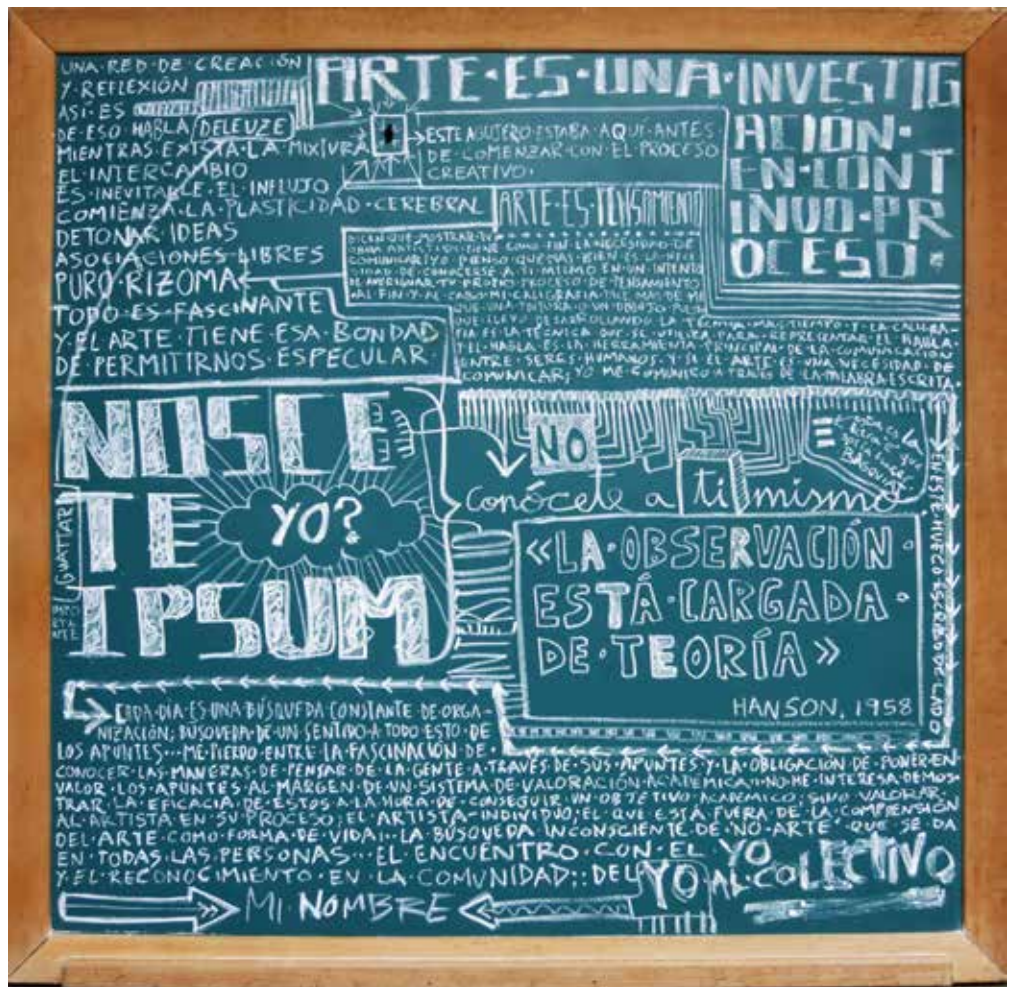 UNA·RED·DE·CREACIÓN
Y·REFLEXIÓN
ASÍ·ES
DE·ESO·HABLA DELEUZE
MIENTRAS·EXISTA·LA·MIXTURA
EL·INTERCAMBIO
ES·INEVITABLE·EL·INFLUJO
COMIENZA·LA·PLASTICIDAD·CEREBRAL
DETONAR·IDEAS
ASOCIACIONES·LIBRES
PURO·RIZOMA
TODO·ES·FASCINANTE
Y·EL·ARTE·TIENE·ESA·BONDAD
DE·PERMITIRNOS·ESPECULAR
ARTE·ES·UNA·INVESTIG
ACIÓN·
EN·CONT
INUO·PR
OCESO·
ESTE·AGUJERO·ESTABA·AQUÍ·ANTES
DE·COMENZAR·CON·EL·PROCESO
CREATIVO·
ARTE·ES·PENSAMIENTO
DICEN·QUE·MOSTRAR·TU
OBRA·ARTÍSTICA·TIENE·COMO·FIN·LA·NECESIDAD·DE
COMUNICAR·YO·PIENSO·QUE·MAS·BIEN·ES·LA·NECE
SIDAD·DE·CONOCERSE·A·TI·MISMO·EN·UN·INTENTO
DE·AVERIGUAR·TU·PROPIO·PROCESO·DE·PENSAMIENTO
·AL·FIN·Y·AL·CABO·MI·CALIGRAFIA·DICE·MAS·DE·MI
QUE·UNA·PINTURA·O·UN·DIBUJO·
QUE·LLEVO·DESARROLLANDO·LA·TÉCNICA·MAS·TIEMPO·Y·LA·CALIGRA-
FIA·ES·LA·TÉCNICA·QUE·SE·UTILIZA·PARA·REPRESENTAR·EL·HABLA·
Y·EL·HABLA·ES·LA·HERRAMIENTA·PRINCIPAL·DE·LA·COMUNICACIÓN
ENTRE·SERES·HUMANOS·Y·SI·EL·ARTE·ES·UNA·NECESIDAD·DE
COMUNICAR; YO·ME·COMUNICO·A·TRAVÉS·DE·LA·PALABRA·ESCRITA·
NOSCE
TE
IPSUM
YO?
GUATTARI
NO
conócete a ti mismo
BASQUIAT
EN·ESTE·HUECO·ESCRIBO·DE·LADO
«LA·OBSERVACIÓN·
ESTÁ·CARGADA·
DE·TEORÍA»
HANSON, 1958
CADA·DÍA·ES·UNA·BÚSQUEDA·CONSTANTE·DE·ORGA-
NIZACIÓN; BÚSQUEDA·DE·UN·SENTIDO·A·TODO·ESTO·DE
LOS·APUNTES···ME·PIERDO·ENTRE·LA·FASCINACIÓN·DE·
CONOCER·LAS·MANERAS·DE·PENSAR·DE·LA·GENTE·A·TRAVÉS·DE·SUS·APUNTES·Y·LA·OBLIGACIÓN·DE·PONER·EN
VALOR·LOS·APUNTES·AL·MARGEN·DE·UN·SISTEMA·DE·VALORACIÓN·ACADÉMICA··NO·ME·INTERESA·DEMOS-
TRAR·LA·EFICACIA·DE·ESTOS·A·LA·HORA·DE·CONSEGUIR·UN·OBJETIVO·ACADÉMICO; SINO·VALORAR·
AL·ARTISTA·EN·SU·PROCESO; EL·ARTISTA-INDIVIDUO; EL·QUE·ESTÁ·FUERA·DE·LA·COMPRENSIÓN
DEL·ARTE·COMO·FORMA·DE·VIDA···LA·BÚSQUEDA·INCONSCIENTE·DE·"NO·ARTE"·QUE·SE·DA
EN·TODAS·LAS·PERSONAS···EL·ENCUENTRO·CON·EL·YO
Y·EL·RECONOCIMIENTO·EN·LA·COMUNIDAD::DEL YO·AL·COLECTIVO
MI·NOMBRE